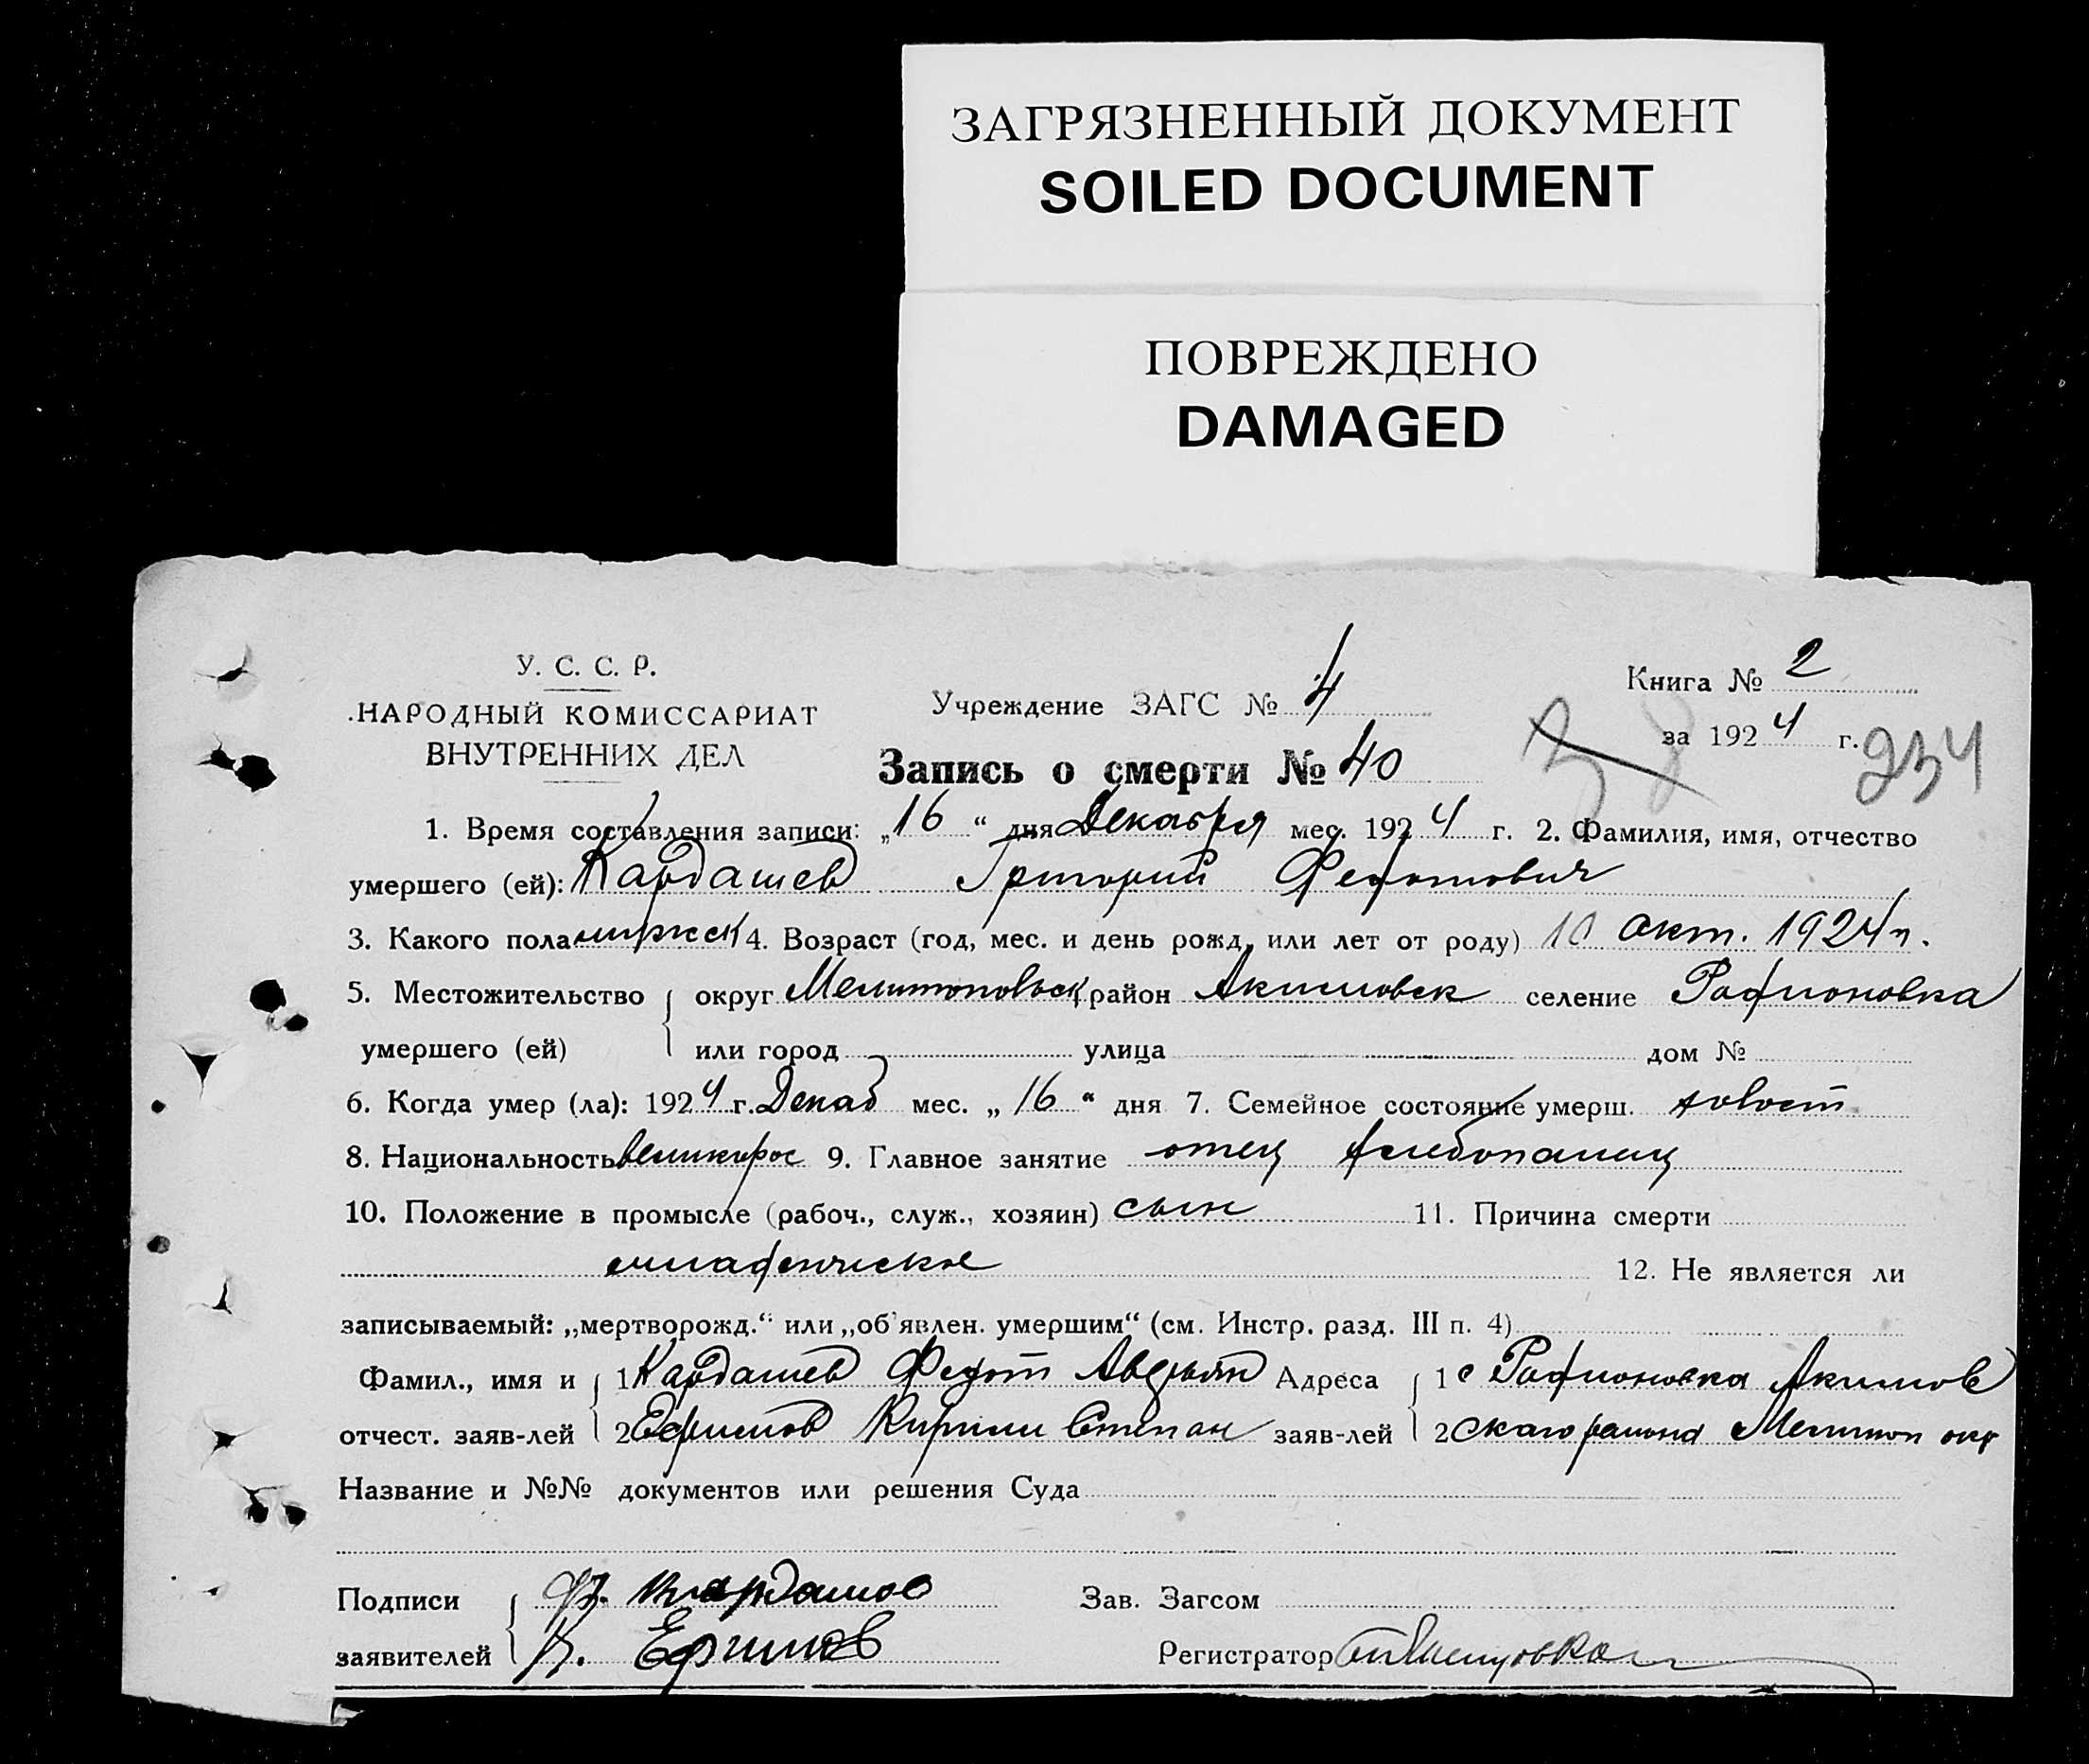 ЗАГРЯЗНЕННЫЙ ДОКУМЕНТ
SOILED DOCUMENT
ПОВРЕЖДЕНО
DAMAGED
У. С. С. Р.
НАРОДНЫЙ КОМИССАРИАТ
ВНУТРЕННИХ ДЕЛ
Учреждение ЗАГС № 4
Книга № 2
за 1924 г. 234
Запись о смерти № 40
1. Время составления записи: „16“ дня Декабря мес. 1924 г. 2. Фамилия, имя, отчество
умершего (ей): Кардашев Григорий Федотович
3. Какого пола мужеск 4. Возраст (год, мес. и день рожд. или лет от роду) 10 окт. 1924 г.
5. Местожительство округ Мелитопольск район Акимовск селение Родионовка
умершего (ей) или город улица дом №
6. Когда умер (ла): 1924 г. Декаб мес. „16“ дня 7. Семейное состояние умерш. холост
8. Национальность великорос 9. Главное занятие отец хлебопашец
10. Положение в промысле (рабоч., служ., хозяин) сын 11. Причина смерти
младенческое 12. Не является ли
записываемый: „мертворожд.“ или „об'явлен. умершим“ (см. Инстр. разд. III п. 4)
Фамил., имя и 1 Кардашев Федот Авдеян Адреса 1 с Родионовка Акимов
отчест. заяв-лей 2 Ефимов Кирилл Степан заяв-лей 2 скаго района Мелитоп окр
Название и №№ документов или решения Суда
Подписи Ф. Кардашов Зав. Загсом
заявителей К. Ефимов Регистратор